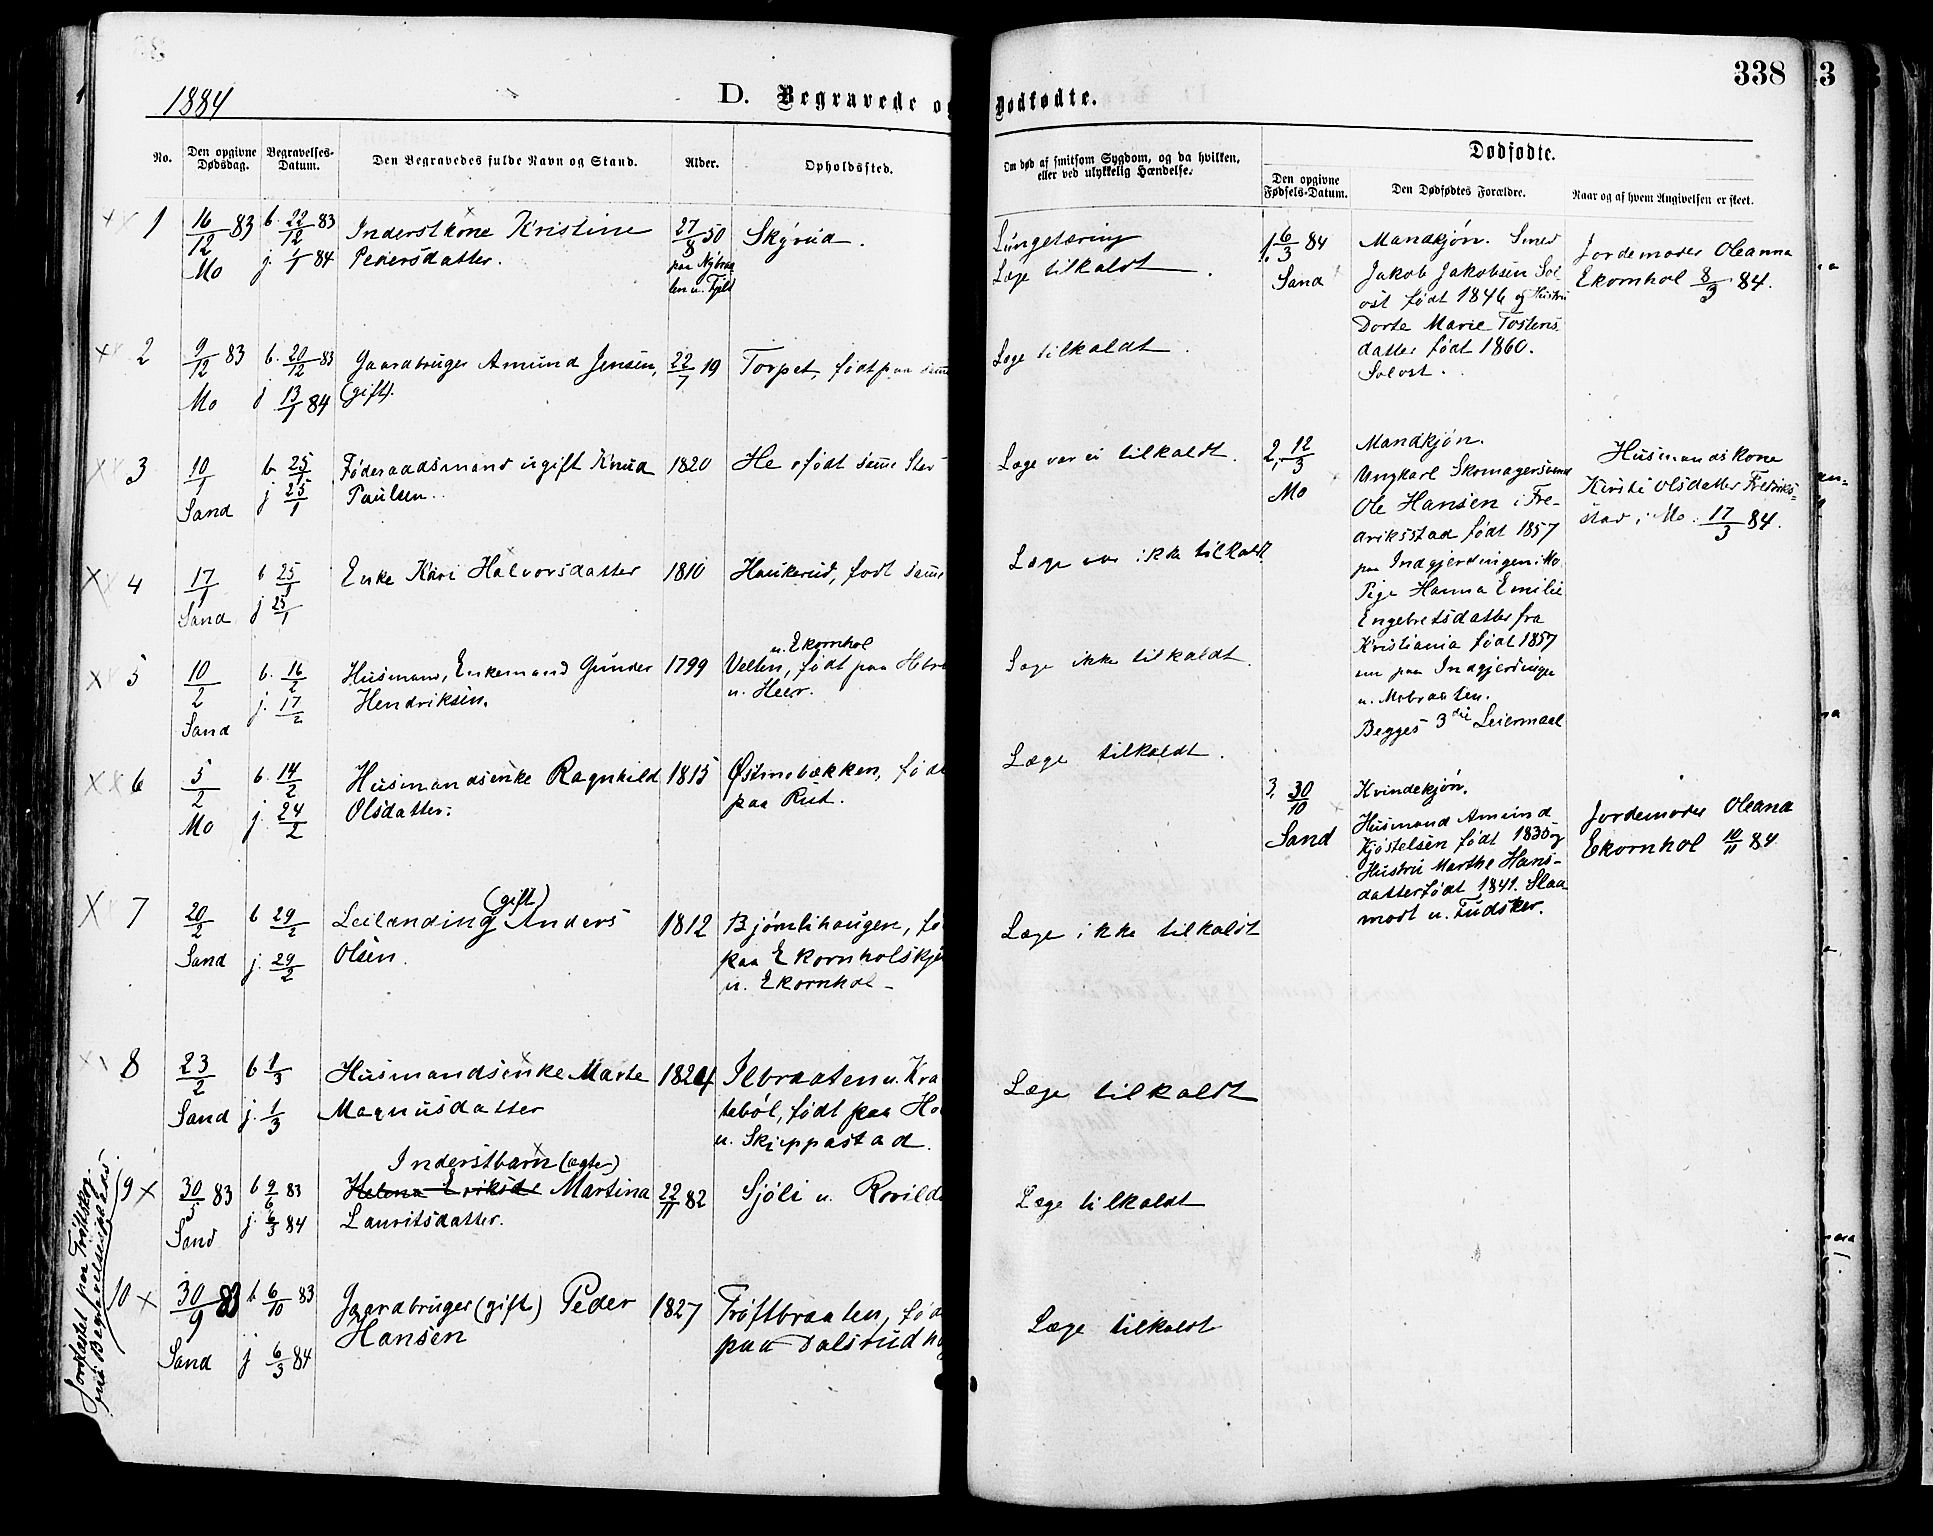 1884
D. Begravede og Dødfødte.
338
No.
Den opgivne Dødsdag.
Begravelses-Datum.
Den Begravedes fulde Navn og Stand.
Alder.
Opholdssted.
Om død af smitsom Sygdom, og da hvilken,
eller ved ulykkelig Hændelse.
Dødfødte.
Den opgivne Fødsels-Datum.
Den Dødfødtes Forældre.
Naar og af hvem Angivelsen er skeet.
1 16/12 83 b. 22/12 83 Inderstkone Kristine 27/8 50 Skýrud.
Mo j. 1/1 84 Pedersdatter. paa
u. Fjeld
2 9/12 83 b. 20/12 83 Gaardbruger Amund Jensen, 22/7 19 Torpet, født paa
Mo j 13/1 84 (gift).
3 10/1 b. 25/1 Føderaadsmand ugift Knud 1820 He født
Sand j 25/1 Paulsen.
4 17/1 b 25/1 Enke Kari Halvorsdatter 1810 Haukerud, født
Sand j 25/1
u. Ekornhol
5 10/2 b. 16/2 Husmand, Enkemand Gunder 1799 Velten, født paa
Sand j. 17/2 Hendriksen. u. Heer.
6 5/2 b. 14/2 Husmandsenke Ragnhild 1815 Østmobækken, født
Mo j. 24/2 Olsdatter. paa Rud.
(gift)
7 20/2 b 29/2 Leilending Anders 1812 Bjørnlihaugen,
Sand j. 29/2 Olsen. paa
u. Ekornhol
8 23/2 b 1/3 Husmandsenke Marte 1824 Ilbraaten u. Kra
Sand j. 1/3 Magnusdatter tebøl, født paa
u. Skjeppastad.
Inderstbarn (ægte)
9 30/5 83 b 9/6 83 Helena Eriksd Martina 22/11 82 Sjøli u.
Sand j. 6/3 84 Lauritsdatter.
10 30/9 83 b 6/10 83 Gaardbruger (gift) Peder 1827 Trøftbraaten, fød
Sand j 6/3 84 Hansen paa
Jordfæstet paa Trøftskog
Begravelsesplads
Lungetæring
Læge tilkaldt.
Læge tilkaldt.
Læge var ei tilkaldt.
Læge var ikke tilkaldt
Læge ikke tilkaldt.
Læge tilkaldt.
Læge ikke tilkaldt
Læge tilkaldt
Læge tilkaldt
Læge tilkaldt
1. 6/3 84
Sand
Mandkjøn. Smed
Jakob Jakobsen Sol
ost født 1846 og Hustru
Dorte Marie Tostens
datter født 1860.
Solost.
Jordemoder Oleanna
Ekornhol 8/3 84.
2. 12/3
Mo
Mandkjøn.
Ungkarl Skomagersvend
Ole Hansen i Fre-
driksstad født 1857
paa Indgjerdingen i Mo
Pige Hanna Emilie
Engebretsdatter fra
Kristiania født 1857
nu paa Indgjerdingen
u. Mobraaten.
Begges 3die Leiermaal
Husmandskone
Kirsti Olsdatter Fredriks-
stad i Mo. 17/3 84.
3. 30/10
Sand
Kvindekjøn.
Husmand Amund
Kjøstelsen født 1835 og
Hustru Marthe Hans-
datter født 1841.
u.
Jordemoder Oleana
Ekornhol 10/11 84